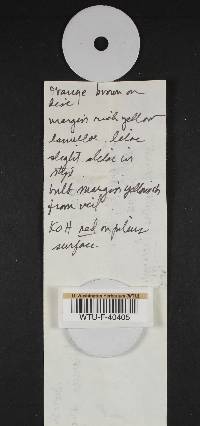 orange brown on
disc,
margin rich yellow
lamellae lilac
slight lilac in
stipe
bulb margin yellowish
from veil
KOH red on pileus
surface.
U. Washington Herbarium (WTU)
WTU-F-40405